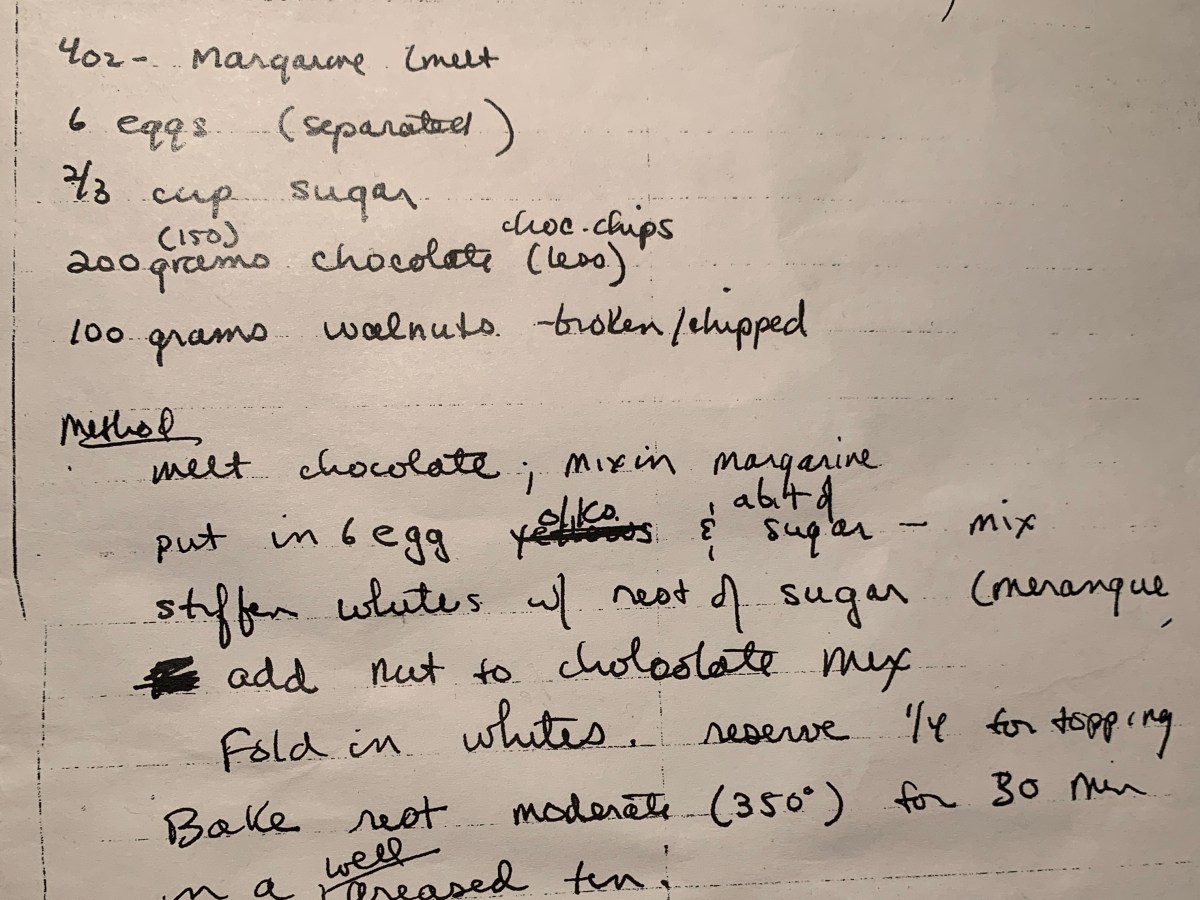 4oz - Margarine (melt
6 eggs (separated)
2/3 cup sugar
(150) choc. chips
200 grams chocolate (less)
100 grams walnuts - broken/chipped
Method
melt chocolate; mix in margarine
put in 6 egg yolks & a bit of sugar - mix
stiffen whites w/ rest of sugar (merangue
add nut to cholcolate mix
Fold in whites. reserve 1/4 for topping
Bake rest moderate (350°) for 30 min
in a well greased tin.